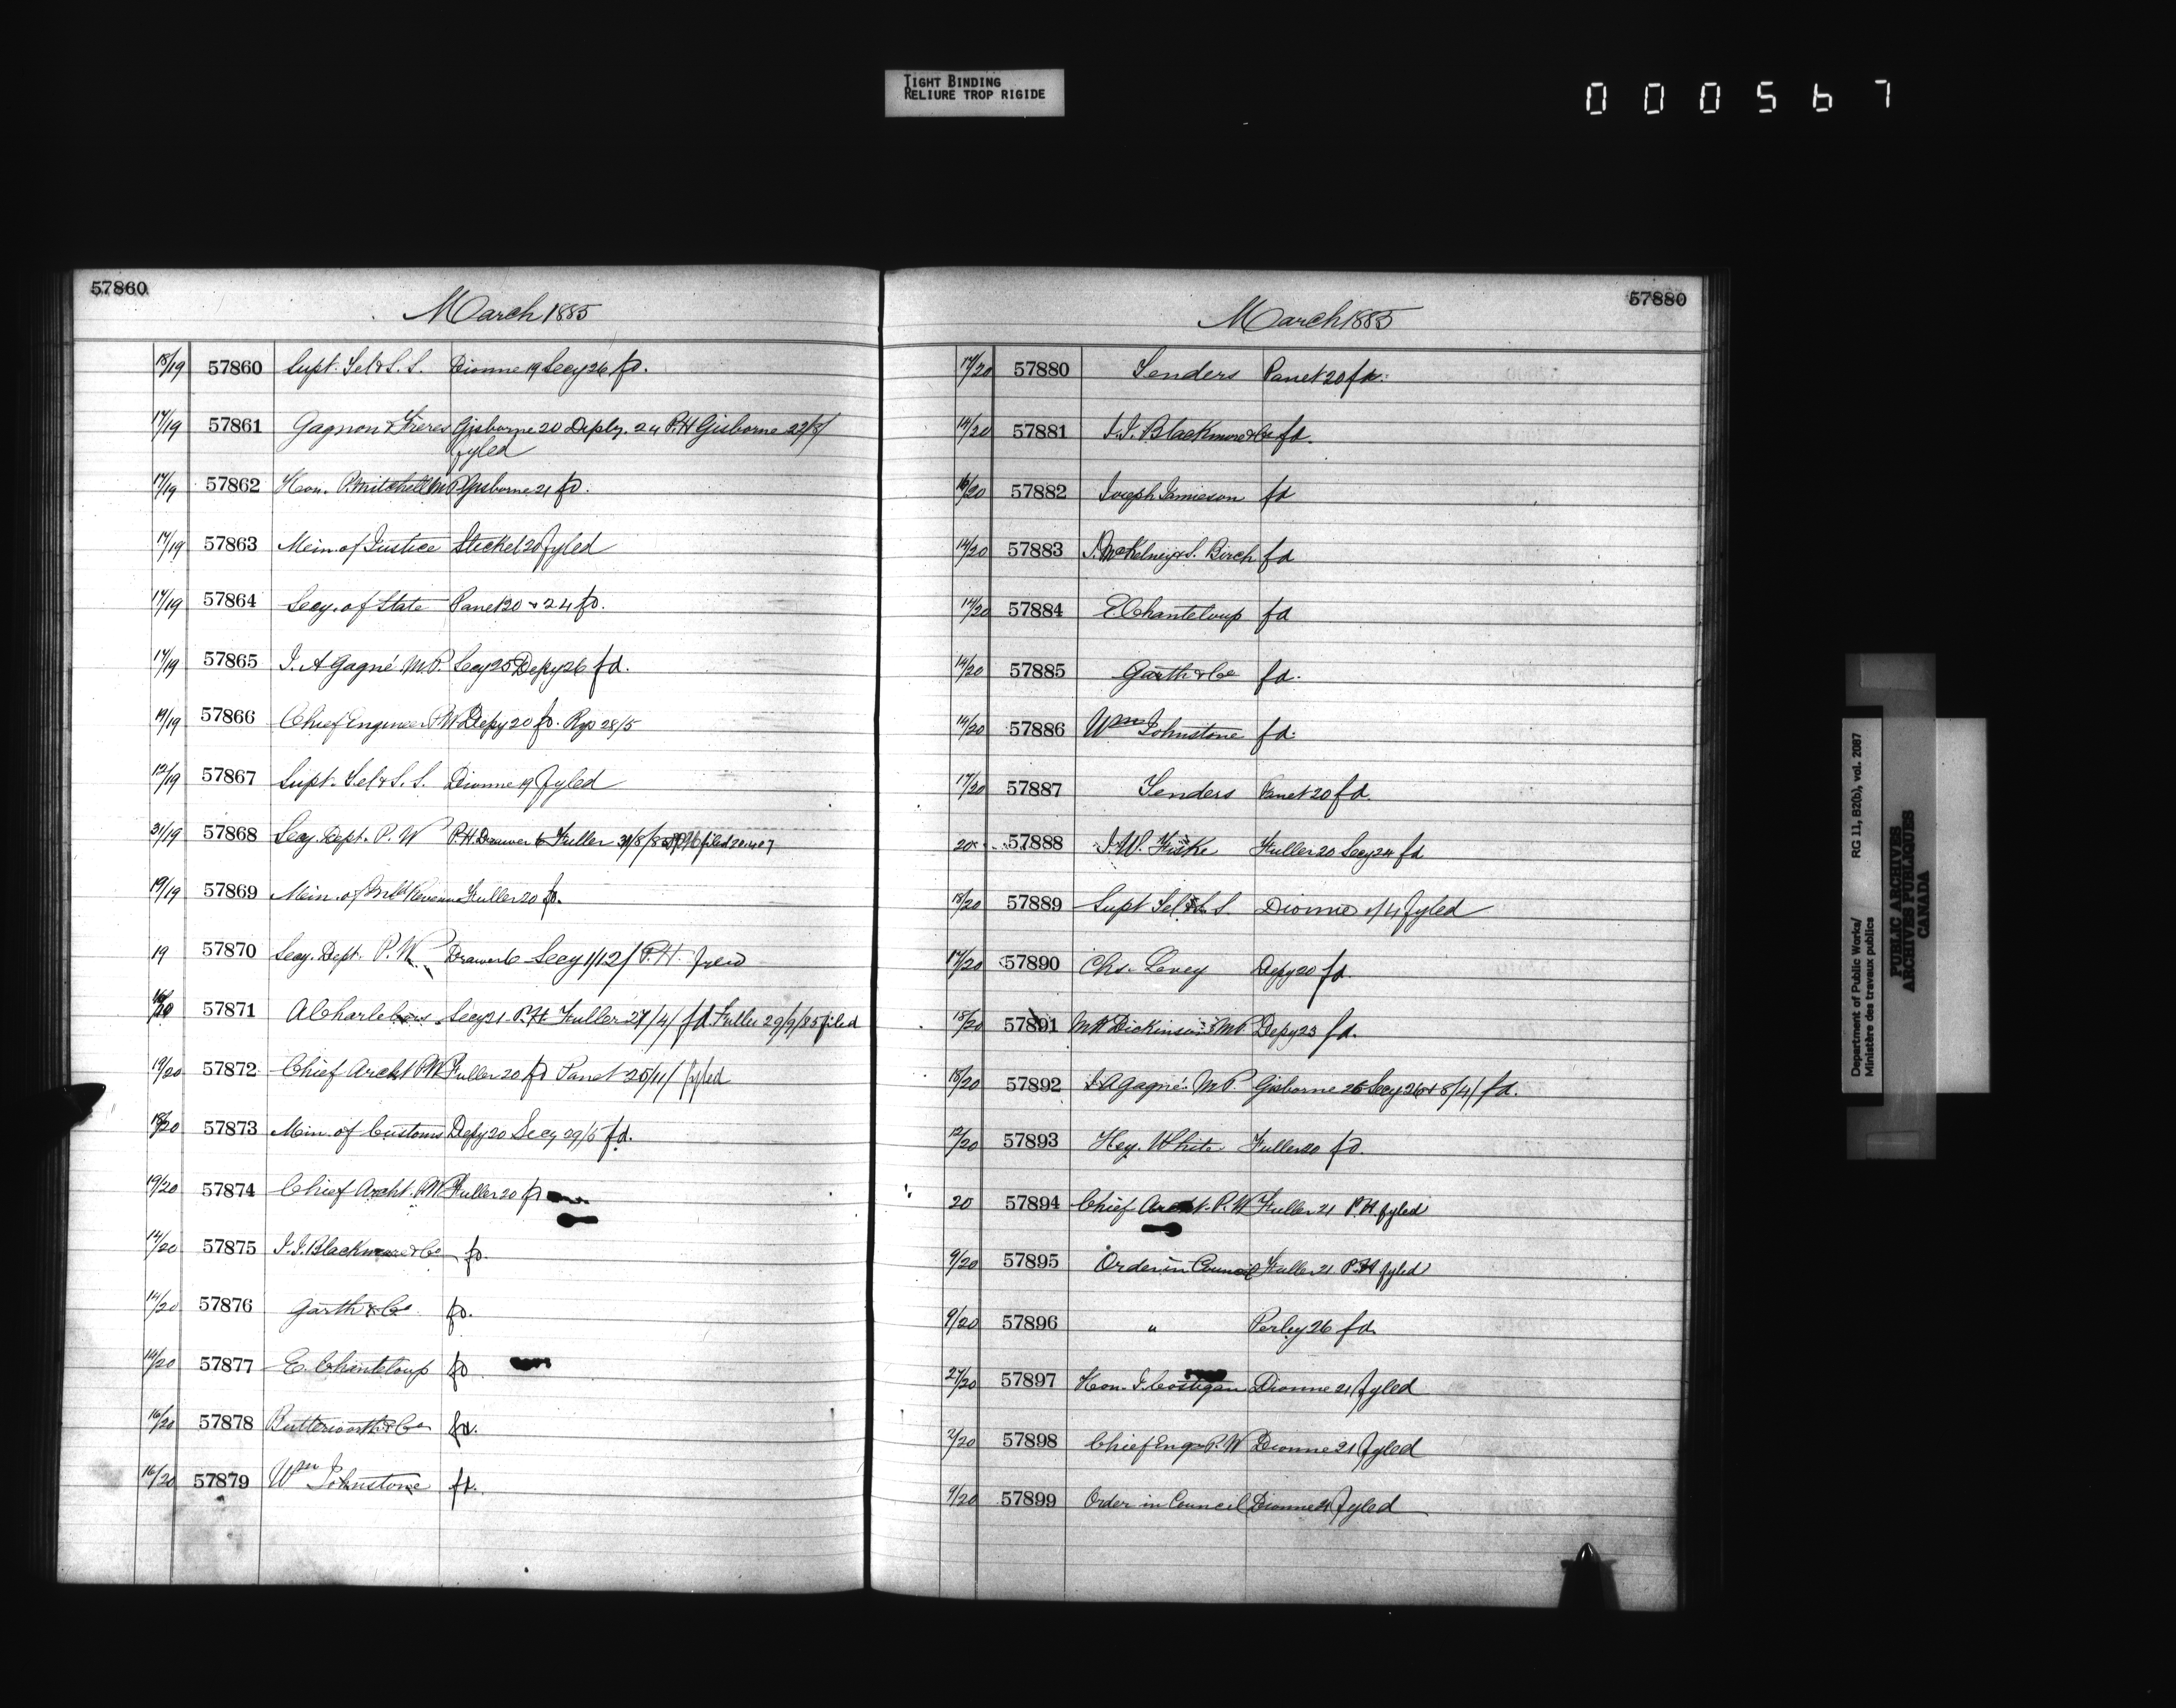 TIGHT BINDING
RELIURE TROP RIGIDE
000567
57860
March 1885
18/19 57860 Supt. Tel & S. S. Dionne 19 Secy 26 fd.
17/19 57861 Gagnon & Freres Gisborne 20 Depty. 24 P.H Gisborne 22/8/
fyled
17/19 57862 Hon. P. Mitchell M P Gisborne 21 fd.
17/19 57863 Min. of Justice Steckel 20 fyled
17/19 57864 Secy. of State Panet 20 & 24 fd.
17/19 57865 J. A Gagné M.P. Secy 25 Depy 26 fd.
19/19 57866 Chief Engineer P W Depy 20 fd. 28/5
12/19 57867 Supt. Tel & S. S. Dionne 19 fyled
31/19 57868 Secy. Dept. P. W P.H. Drawer 6 Fuller 31/8/85 filed
19/19 57869 Min. of Inld Revenue Fuller 20 fd.
19 57870 Secy. Dept. P. W Drawer 6 Secy 1/12/ P.H.
57871 A Charlebois Secy 21 P.H Fuller 27/4/ fd. Fuller 29/9/85 filed
19/20 57872 Chief Archt P W Fuller 20 fd Panet 25/11/ fyled
18/20 57873 Min. of Customs Depy 20 Secy 29/5 fd.
19/20 57874 Chief Archt. P.W Fuller 20 fd
14/20 57875 J. J. Blackmore & Co fd.
14/20 57876 Garth & Co fd.
14/20 57877 E. Chanteloup fd
16/20 57878 Butterworth & Co fd.
16/20 57879 Wm Johnstone fd.
57880
March 1885
17/20 57880 Tenders Panet 20 fd.
14/20 57881 J. J. Blackmore & Co fd.
16/20 57882 Joseph Jamieson fd
14/20 57883 J. McKelvey & S. Birch fd
14/20 57884 E. Chanteloup fd
14/20 57885 Garth & Co fd.
14/20 57886 Wm Johnstone fd.
17/20 57887 Tenders Panet 20 fd.
20 57888 J. W. Fiske Fuller 20 Secy 24 fd
18/20 57889 Supt Tel & S. S. Dionne 1/4 fyled
17/20 57890 Chs. Levey Depy 20 fd.
18/20 57891 Dickinson MP Depy 23 fd.
18/20 57892 J. A Gagné M P. Gisborne 25 Secy 26 & 8/4/ fd.
12/20 57893 Hey. White Fuller 20 fd.
20 57894 Chief Archt. P. W Fuller 21 P.H. fyled
9/20 57895 Order in Council Fuller 21 P.H fyled
9/20 57896 " Perley 26 fd.
27/20 57897 Hon. J. Costigan Dionne 21 fyled
2/20 57898 Chief Engr P. W Dionne 21 fyled
9/20 57899 Order in Council Dionne 21 fyled
Department of Public Works/
Ministère des travaux publics
RG 11, B2(b), vol. 2087
PUBLIC ARCHIVES
ARCHIVES PUBLIQUES
CANADA